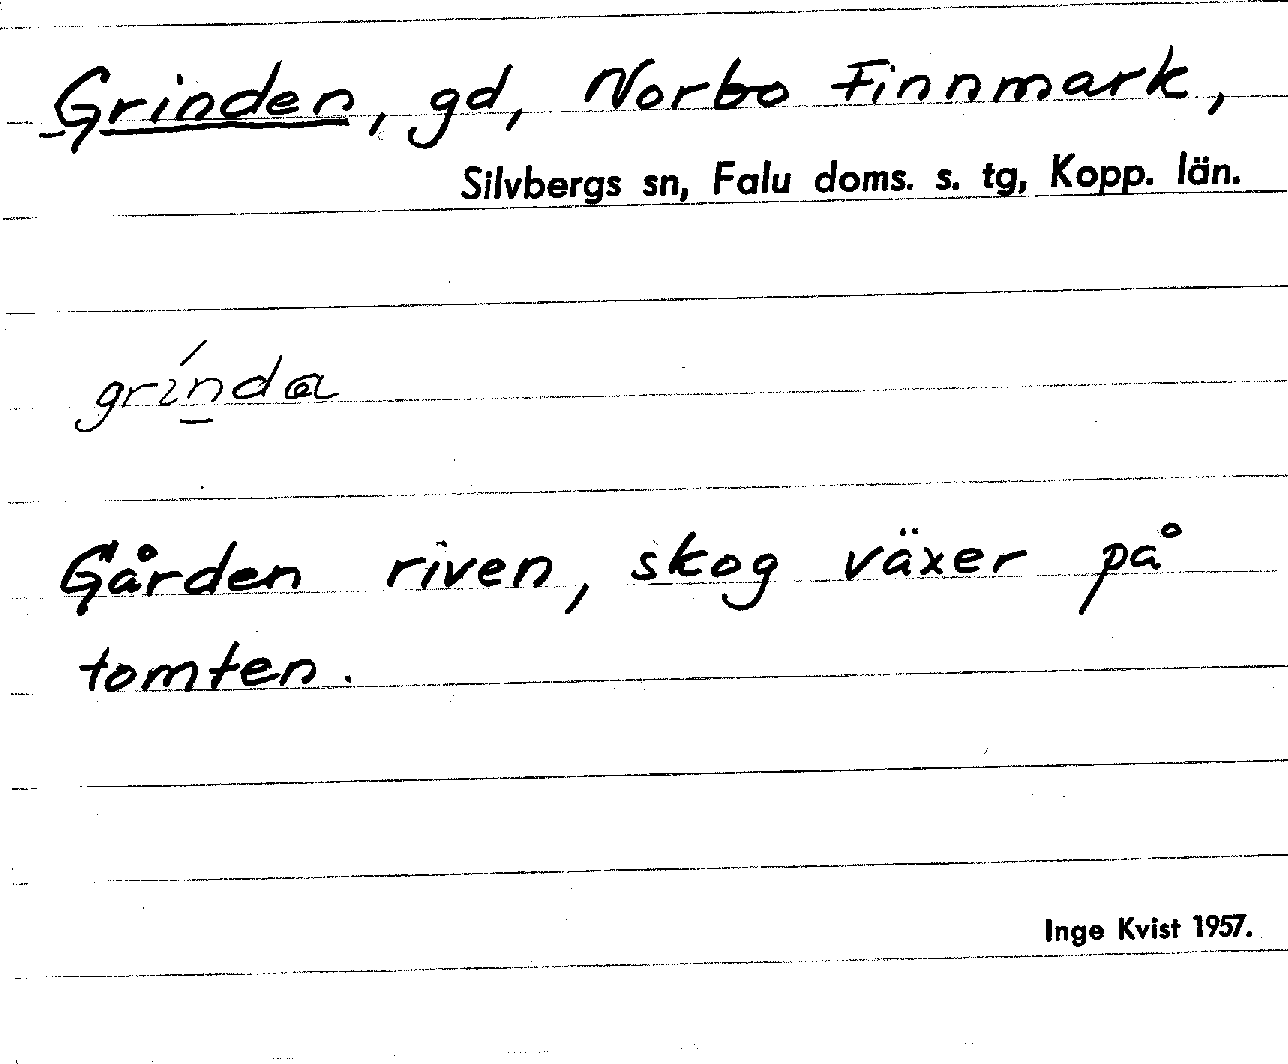 Grinden, gd, Norbo Finnmark,
Silvbergs sn, Falu doms. s. tg, Kopp. län.
grínda
Gården riven, skog växer på
tomten.
Inge Kvist 1957.